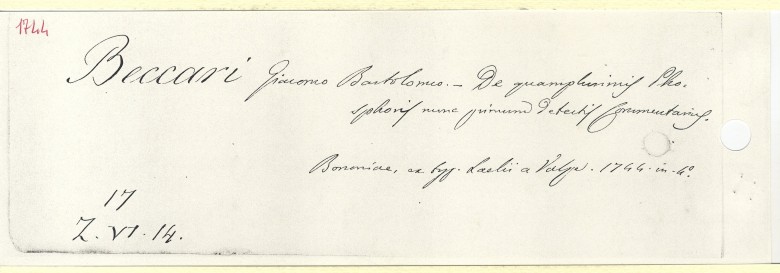 1744
Beccari Giacomo Bartolomeo. – De quamplurimis Pho-
sphoris nunc primum detectis Commentarius.
Bononiae, ex typ. Laelii a Vulpe. 1744. in-4º.
17
Z. VI. 14.